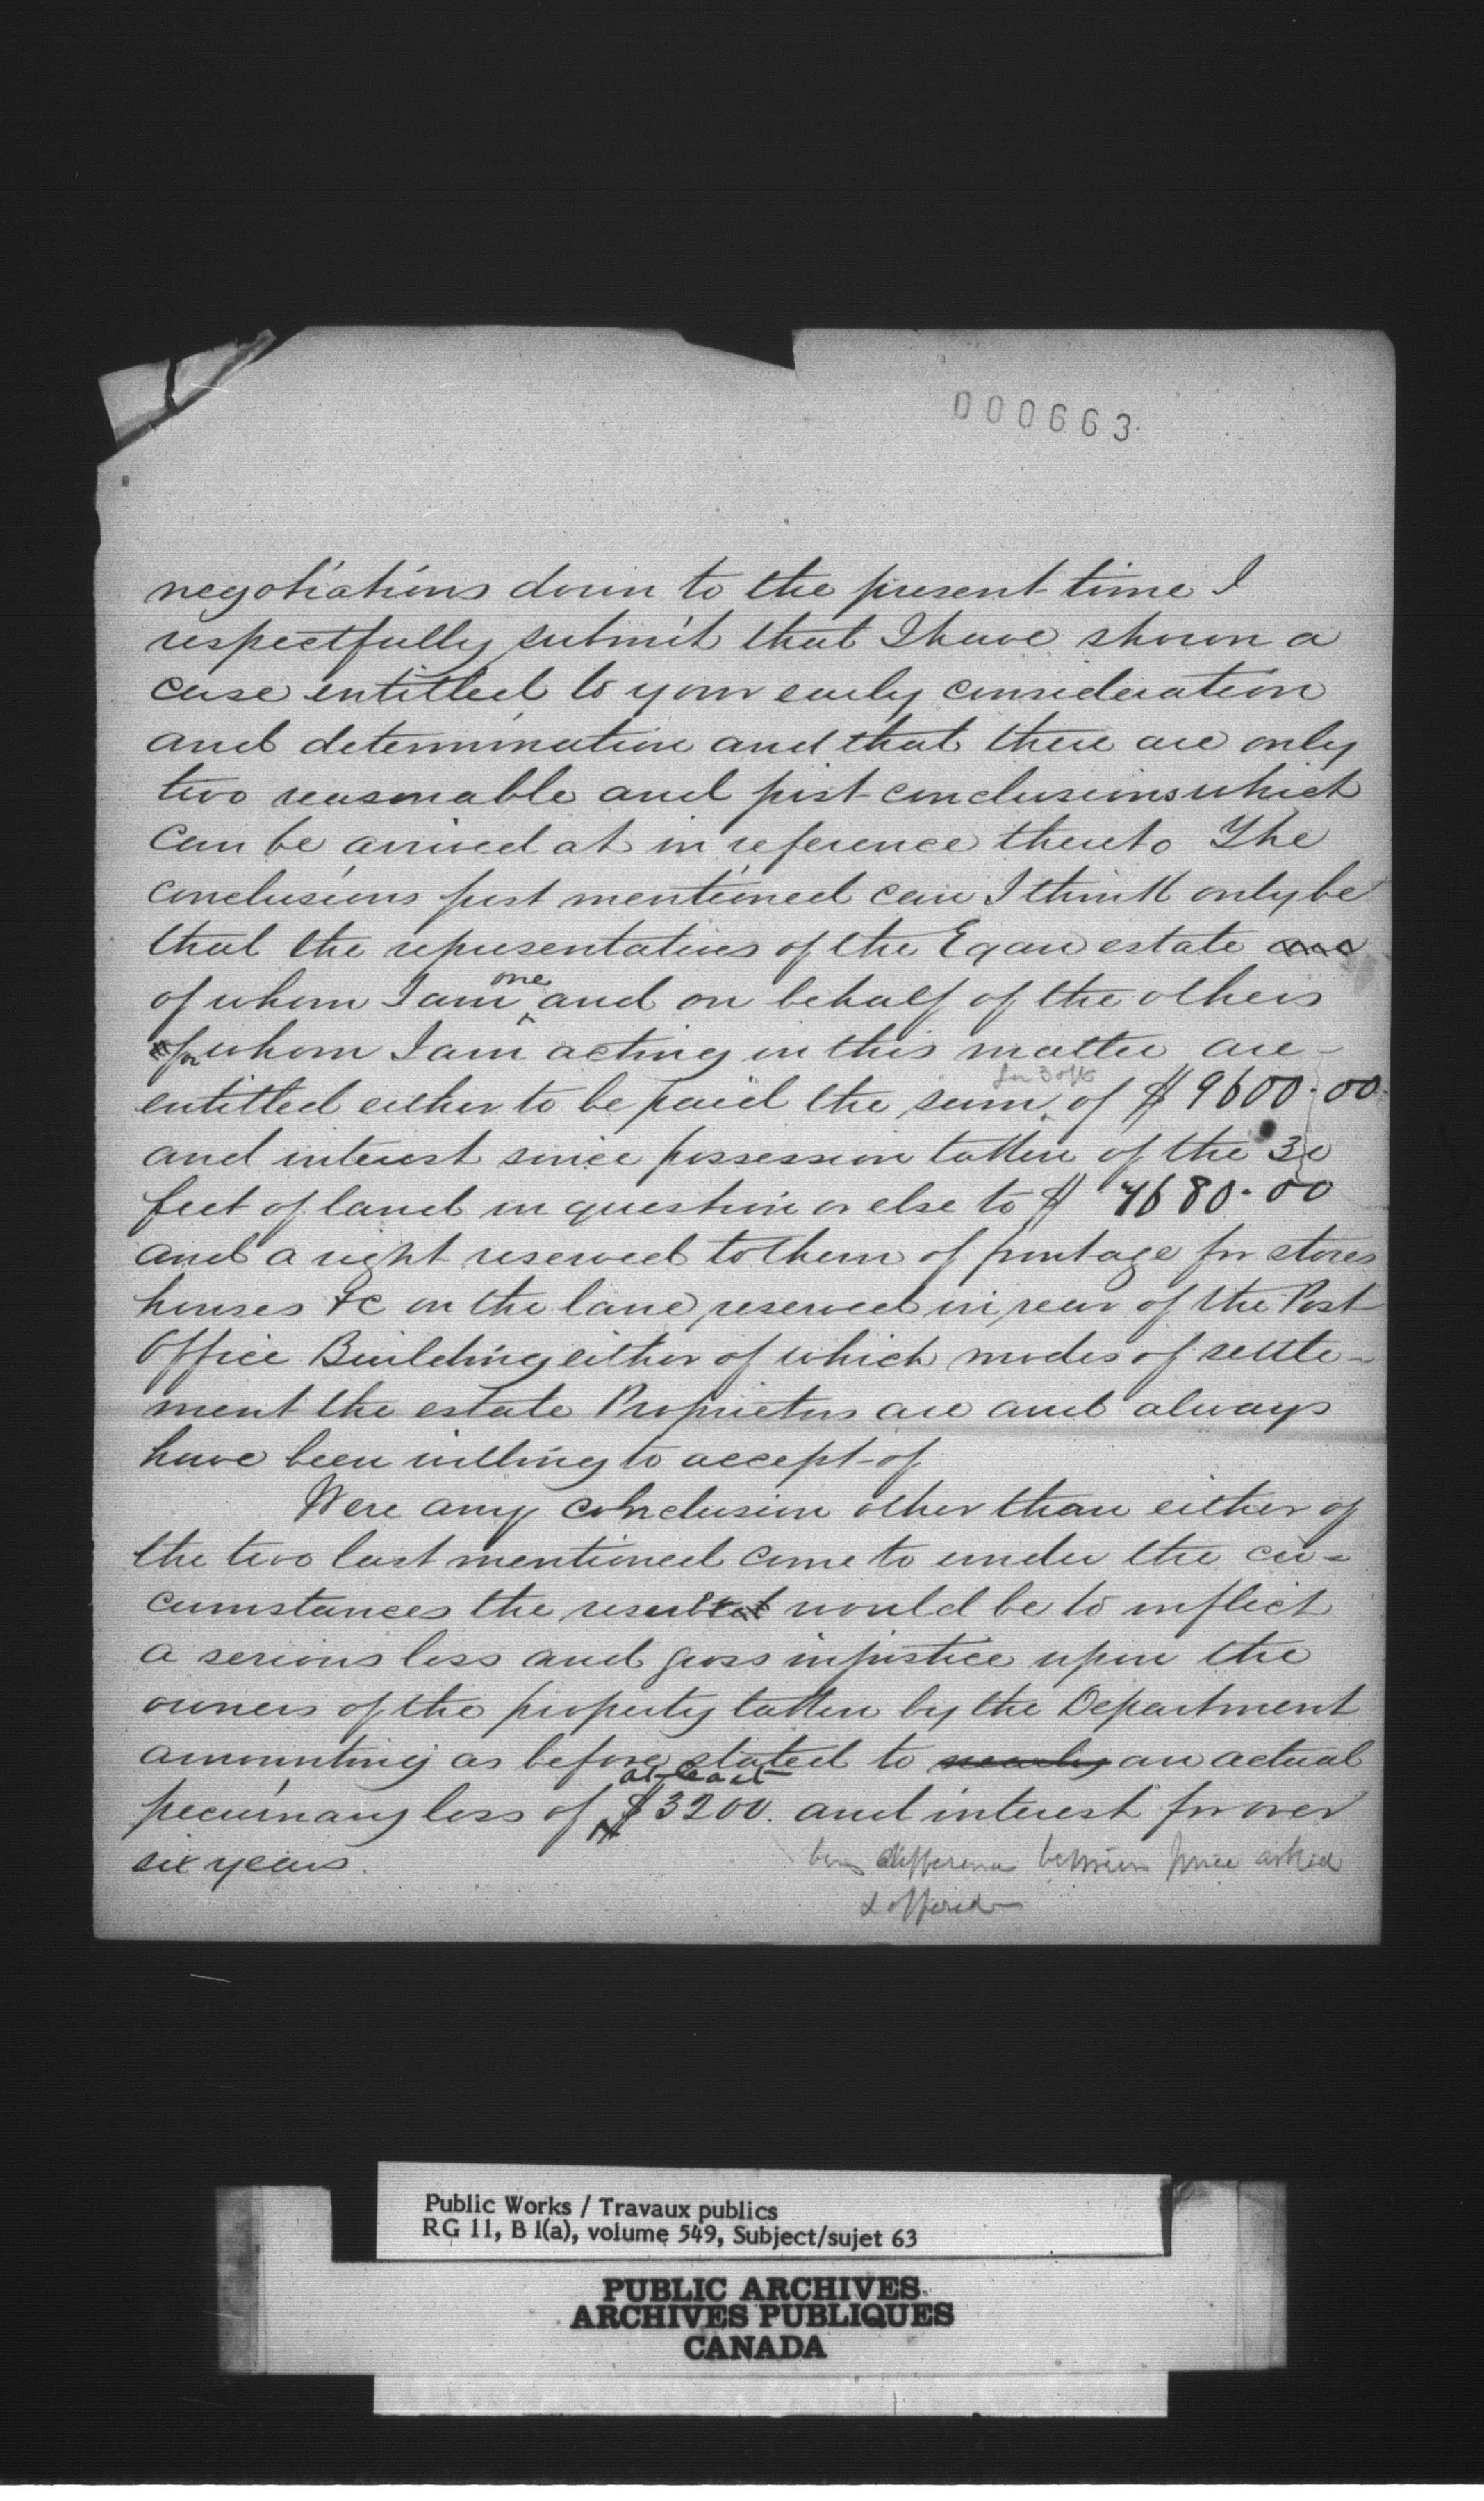 000663
negotiations down to the present time I
respectfully submit that I have shown a
case entitled to your early consideration
and determination and that there are only
two reasonable and just conclusions which
can be arrived at in reference thereto The
conclusions just mentioned can I think only be
that the representatives of the Egan estate
of whom I am one and on behalf of the others
for whom I am acting in this matter are
entitled either to be paid the sum for 30 ft of $9600.00
and interest since possession taken of the 30
feet of land in question or else to $ 7680.00
and a right reserved to them of frontage for stores
houses &c on the lane reserved in rear of the Post
Office Building either of which modes of settle-
ment the estate Proprietors are and always
have been willing to accept of
Were any conclusion other than either of
the two last mentioned come to under the cir-
cumstances the result would be to inflict
a serious loss and gross injustice upon the
owners of the property taken by the Department
amounting as before stated to nearly an actual
pecuinary loss of at least $3200. and interest for over
six years.
being difference between price asked
& offered
Public Works / Travaux publics
RG 11, B 1(a), volume 549, Subject/sujet 63
PUBLIC ARCHIVES
ARCHIVES PUBLIQUES
CANADA